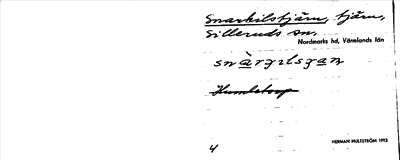 Snarkilstjärn, tjärn,
Silleruds sn.
Nordmarks hd, Värmlands län
Humletorp
4
HERMAN HULTSTRÖM 1912